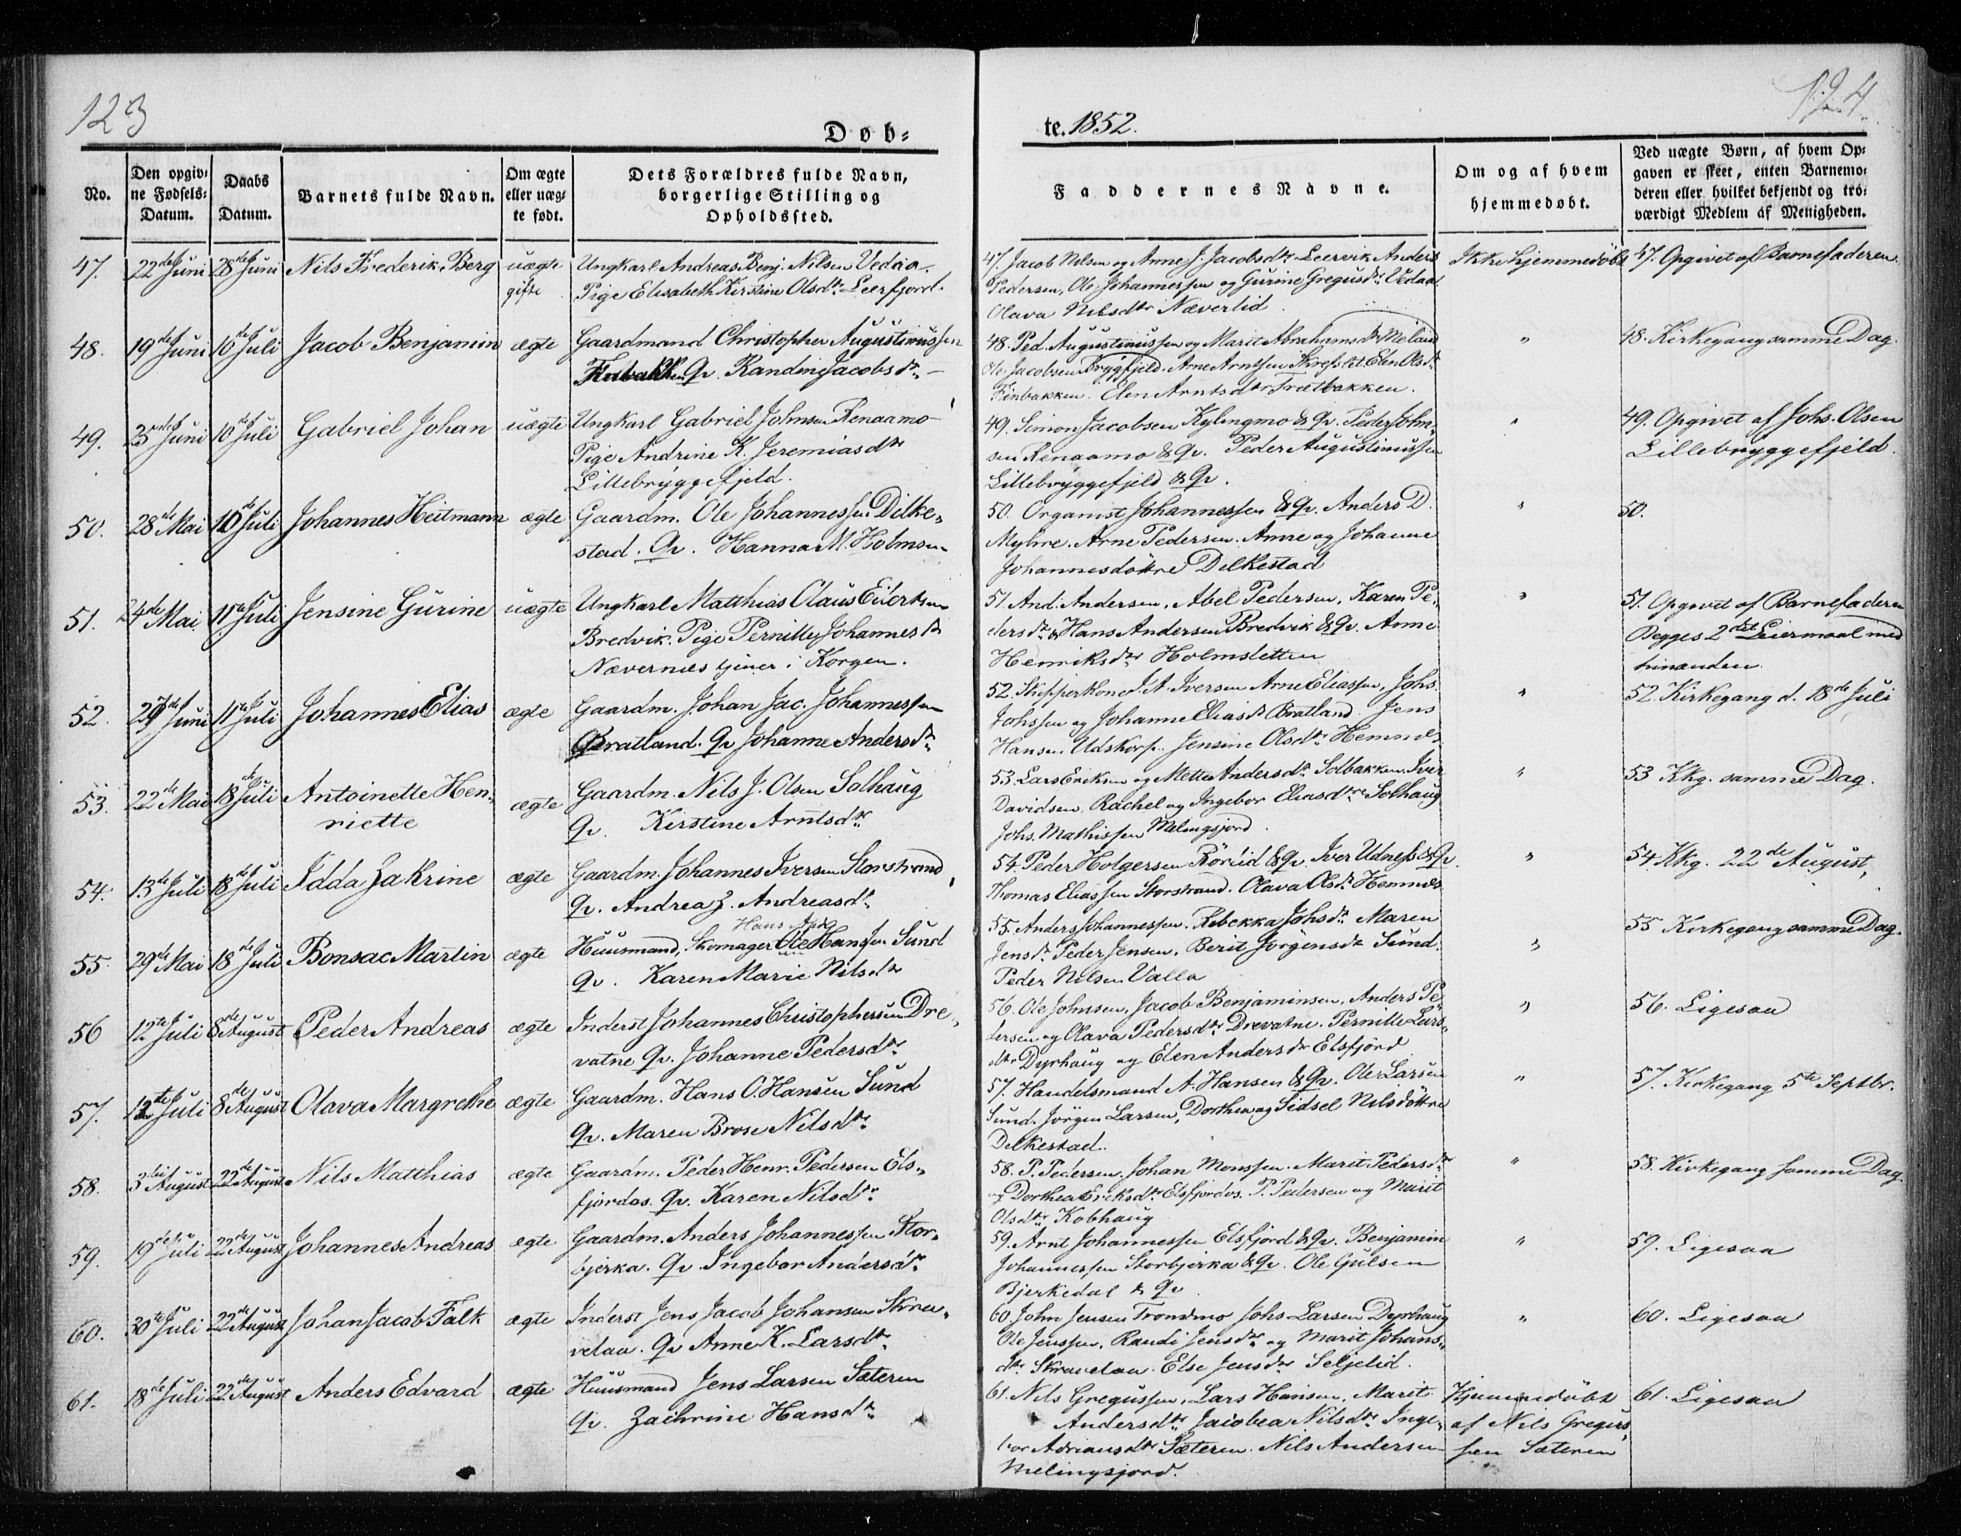 123
124
Døb=
te. 1852.
No.
Den opgiv=
ne Fødsels=
Datum.
Daabs
Datum.
Barnets fulde Navn.
Om ægte
eller uæg=
te født.
Dets Forældres fulde Navn,
borgerlige Stilling og
Opholdssted.
Faddernes Navne.
Om og af hvem
hjemmedøbt.
Ved uægte Børn, af hvem Op=
gaven er skeet, enten Barnemo=
deren eller hvilket bekjendt og tro=
værdigt Medlem af Menigheden.
47. 22de Juni 28de Juni Nils Frederik Berg uægte Ungkarl Andreas Benj. Nilsen
gifte Pige Elisabeth Kirstine Olsdtr Leerfjord.
47. Jacob Nilsen og Anne J. Jacobsdtr Leervik Anders
Pedersen, Ole Johannessen og Gurine Gregusdtr
Olava Nilsdtr Næverlid.
Ikke hjemmedøbt
47. Opgivet af Barnefaderen.
48. 19de Juni 10de Juli Jacob Benjamin ægte Gaardmand Christopher Augustinussen
Qv. Randine Jacobsdtr
48. Ped. Augustinussen og Marit Abrahamsdtr
Ole Jacobsen Bryggfjeld. Arne Arntsen Elen Olsdtr
Finbakken. Elen Arntsdtr
"
48. Kirkegang samme Dag.
49. Juni 10de Juli Gabriel Johan uægte Ungkarl Gabriel Johnsen Renaamo
Pige Andrine K. Jeremiasdtr
Lillebryggefjeld.
49. Simon Jacobsen Kylingmo & Qv. Peder John=
sen Renaamo & Qv. Peder Augustinussen
Lillebryggefjeld & Qv.
"
49. Opgivet af Johs. Olsen
Lillebryggefjeld.
50. 28de Mai 10de Juli Johannes Heitmann ægte Gaardm. Ole Johannessen Dilke=
stad. Qv. Hanna M. Holmsen
50. Organist Johannessen & Qv. Anders D.
Myhre. Arne Pedersen. Anne og Johanne
Johannesdøttre Dilkestad
"
50.
51. 24de Mai 11te Juli Jensine Gurine uægte Ungkarl Matthias Claus Eilertsen
Bredvik. Pige Pernille Johannesdtr
Nævernæs tjener i Korgen.
51. And. Andersen, Abel Pedersen, Karen Pe=
dersdtr & Hans Andersen Bredvik & Qv. Anne
Henriksdtr Holmsletten
"
51. Opgivet af Barnefaderen
Begges 2det Leiermaal med
hinanden.
52. Juni 11te Juli Johannes Elias ægte Gaardm. Johan Jac. Johannessen
Bratland. Qv Johanne Andersdtr
52. Skipperkone J. A. Iversen Arne Eliassen, Johs
Johssen og Johanne Eliasdtr Bratland. Jens
Hansen Udskorp. Jensine Olsdtr Hemnæs
"
52. Kirkegang d. 18de Juli
53. 22de Mai 18de Juli Antoinette Hen=
riette
ægte Gaardm. Nils J. Olsen Solhaug
Qv. Kirstine Arntsdtr
53. Lars Eriksen og Mette Andersdtr Solbakken. Iver
Davidsen, Rachel og Ingebor Eliasdtre Solhaug
Johs. Mathissen Melingsjord.
"
53 Kkg. samme Dag.
54. 13de Juli 18de Juli Idda Zakrine ægte Gaardm. Johannes Iversen Storstrand
Qv. Andrea Z. Andreasdtr
54. Peder Holgersen & Qv. Iver Udnæss & Qv.
Thomas Eliassen Storstrand. Olava Olsdtr Hemnæs
"
54. Kkg. 22de August,
55. 29de Mai 18de Juli Bonsac Martin ægte Huusmand, Skomager Ole Hansen Sund
Qv. Karen Marie Nilsdtr
55. Anders Johannessen. Rebekka Johsdtr Maren
Jensdtr Peder Jensen, Berit Jörgensdtr Sund.
Peder Nilsen Valla
"
55 Kirkegang samme Dag.
56 12te Juli 8de August Peder Andreas ægte Inderst Johannes Christophersen Dre=
vatne Qv. Johanne Pedersdtr
56. Ole Johnsen, Jacob Benjaminsen, Anders Pe=
dersen og Olava Pedersdtr Drevatne. Pernille Lars=
dtr Dyrhaug og Elen Andersdtr Elsfjord
"
56. Ligesaa
57. 12te Juli 8de August Olava Margrethe ægte Gaardm. Hans O. Hansen Sund
Qv. Maren Brose Nilsdtr
57. Handelsmand A. Hansen & Qv. Ole Larsen
Sund. Jörgen Larsen, Dorthea og Sidsel Nilsdöttre
Dilkestad.
"
57. Kirkegang 5te Septbr.
58. 3die August 22de August Nils Matthias ægte Gaardm. Peder Henr. Pedersen Els=
fjordos. Qv. Karen Nilsdtr
58. P. Pedersen, Johan Monssen. Marit Pedersdtr
og Dorthea Eriksdtr Elsfjordos. P. Pedersen og Marit
Olsdtr Kobhaug
"
58. Kirkegang samme Dag.
59. 19de Juli 22de August Johannes Andreas ægte Gaardm. Anders Johannessen Stor=
bjerka. Qv Ingebor Andersdtr
59. Arnt Johannessen Elsfjord & Qv. Benjamin
Johannessen Storbjerka & Qv. Ole Gulsen
Bjerkedal & Qv
"
59. Ligesaa
60. 30te Juli 22de August Johan Jacob Falk ægte Inderst Jens Jacob Johansen Skra=
velaa. Qv Anne K. Larsdtr
60. John Jensen Trondmo Johs Larsen Dyrhaug
Ole Jenssen, Randi Jensdtr og Marit Johans=
dtr Skravelaa. Else Jensdtr Seljelid.
"
60. Ligesaa
61. 18de Juli 22de August Anders Edvard ægte Huusmand Jens Larsen Sæteren
Qv. Zachrine Hansdtr
61. Nils Gregussen, Lars Hansen, Marit
Andersdtr Jacobea Nilsdtr Inge=
bor Adriansdtr Sæteren. Nils Andersen
Melingsjord.
Hjemmedöbt
af Nils Gregus=
sen Sæteren
61. Ligesaa